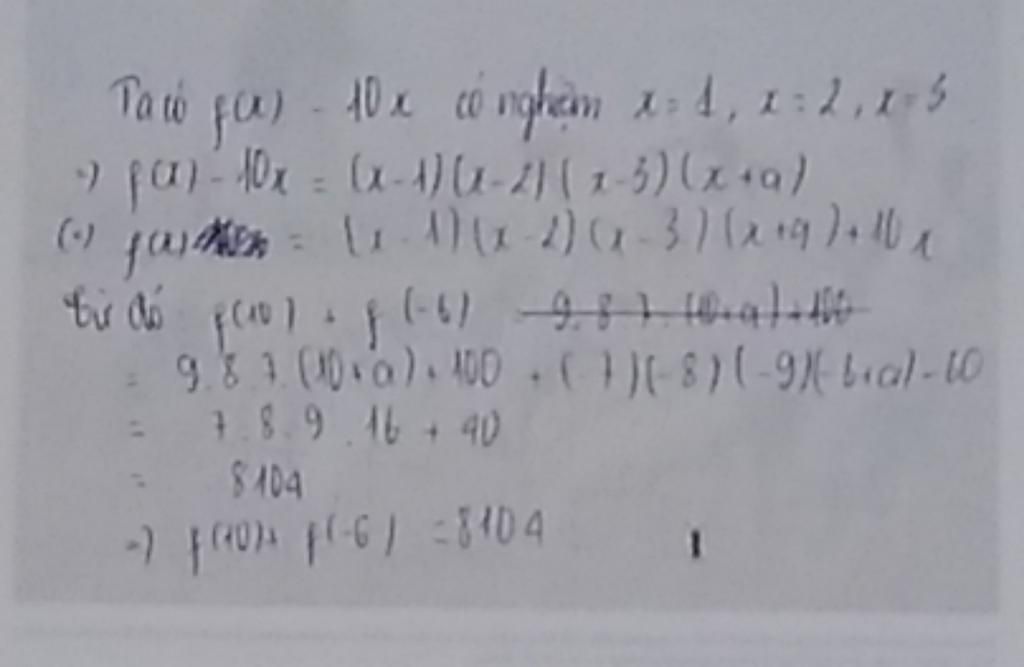 Ta có f(x) - 10x có nghiệm x = 1, x = 2, x = 3
=) f(x) - 10x = (x-1)(x-2)(x-3)(x+a)
(=) f(x) = (x-1)(x-2)(x-3)(x+a)+10x
Từ đó f(10) + f(-6) 9.8.7.(10+a)+100
= 9.8.7.(10+a)+100 + (-7)(-8)(-9)(-6+a)-60
= 7.8.9.16 + 40
= 8104
=) f(10)+ f(-6) = 8104